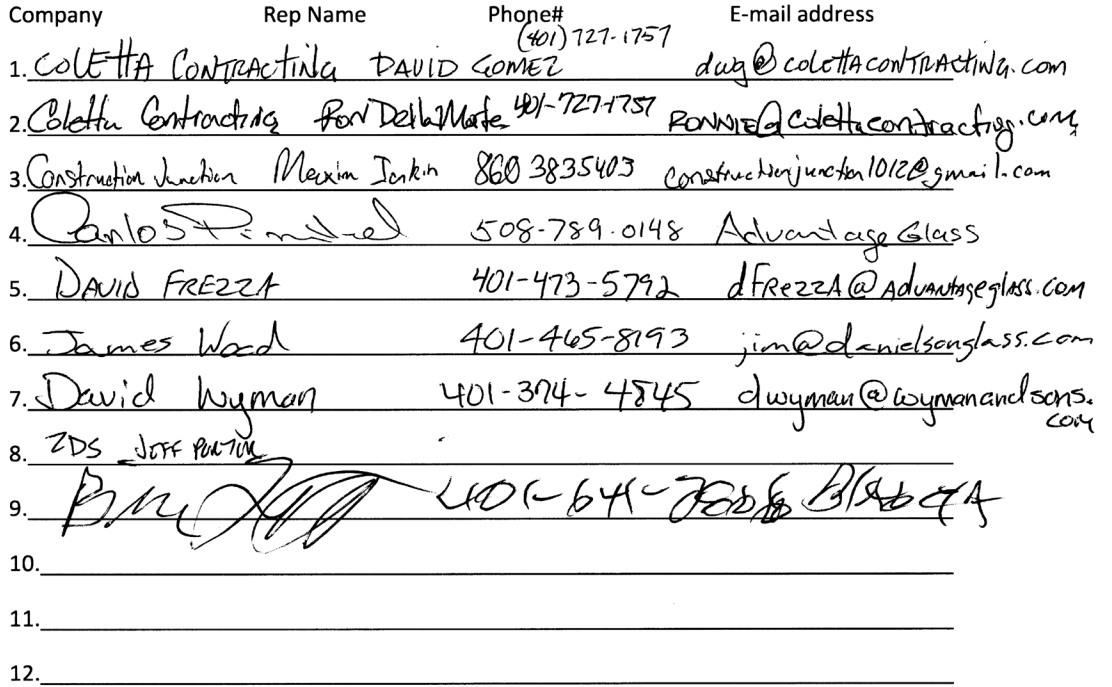 Company Rep Name Phone# E-mail address
(401) 727-1757
1. COLETTA CONTRACTING DAVID GOMEZ dwg@colettacontracting.com
2. Coletta Contracting Ron DellaMorte 401-727-1757 RONNIE@colettacontracting.com
3. Construction Junction Maxim 860 3835403 constructionjunction1012@gmail.com
4. Carlos Pimentel 508-789-0148 Advantage Glass
5. DAVID FREZZA 401-473-5792 dFREZZA@Advantageglass.com
6. James Wood 401-465-8193 jim@danielsonglass.com
7. David Wyman 401-374-4845 dwyman@wymanandsons.
com
8. ZDS JEFF
9. 401-641-
10.
11.
12.